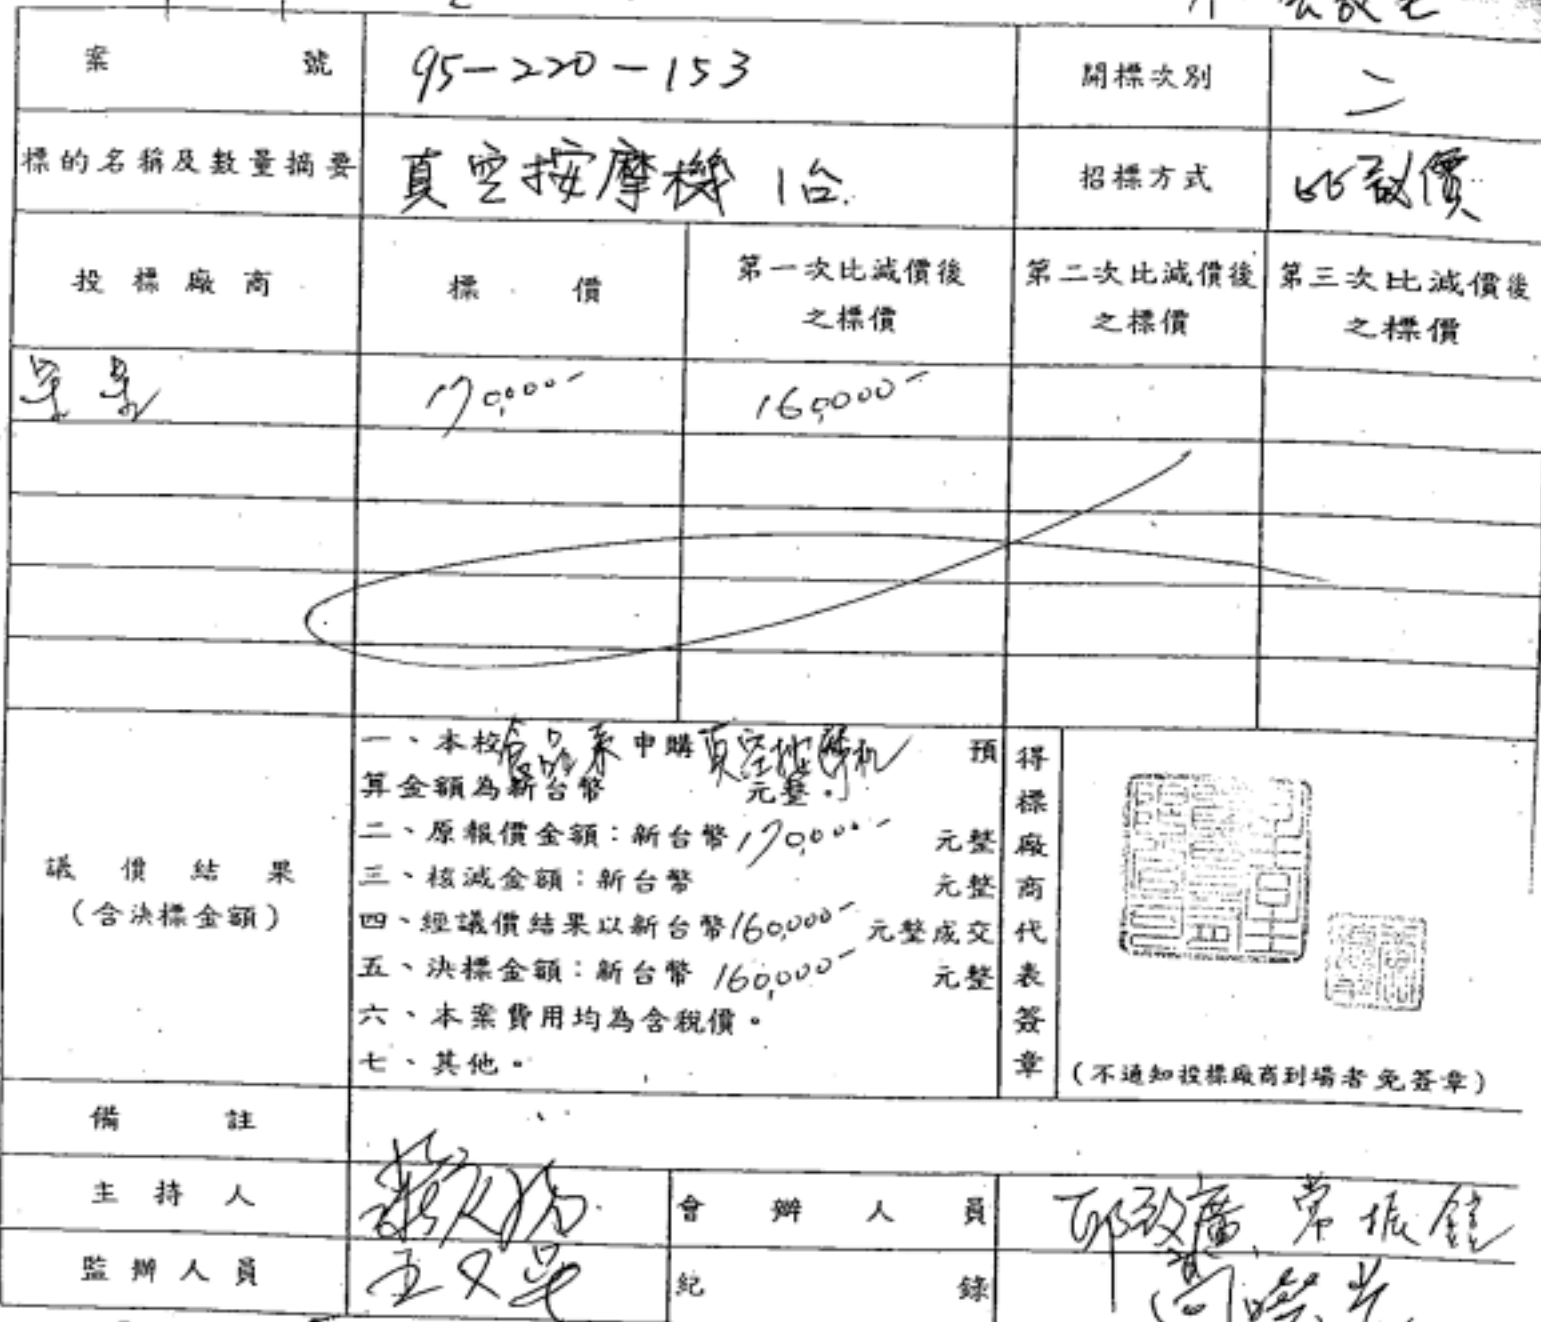 案號 95-220-153 開標次別 二
標的名稱及數量摘要 真空按摩機 1台. 招標方式 比議價
投標廠商 標價 第一次比減價後之標價 第二次比減價後之標價 第三次比減價後之標價
170,000- 160,000-
議價結果
(含決標金額)
一、本校食品系申購真空按摩机 預
算金額為新台幣 元整。
二、原報價金額:新台幣170,000- 元整
三、核減金額:新台幣 元整
四、經議價結果以新台幣160,000- 元整成交
五、決標金額:新台幣 160,000- 元整
六、本案費用均為含稅價。
七、其他。
得標廠商代表簽章
(不通知投標廠商到場者免簽章)
備註
主持人 會辦人員
監辦人員 紀錄